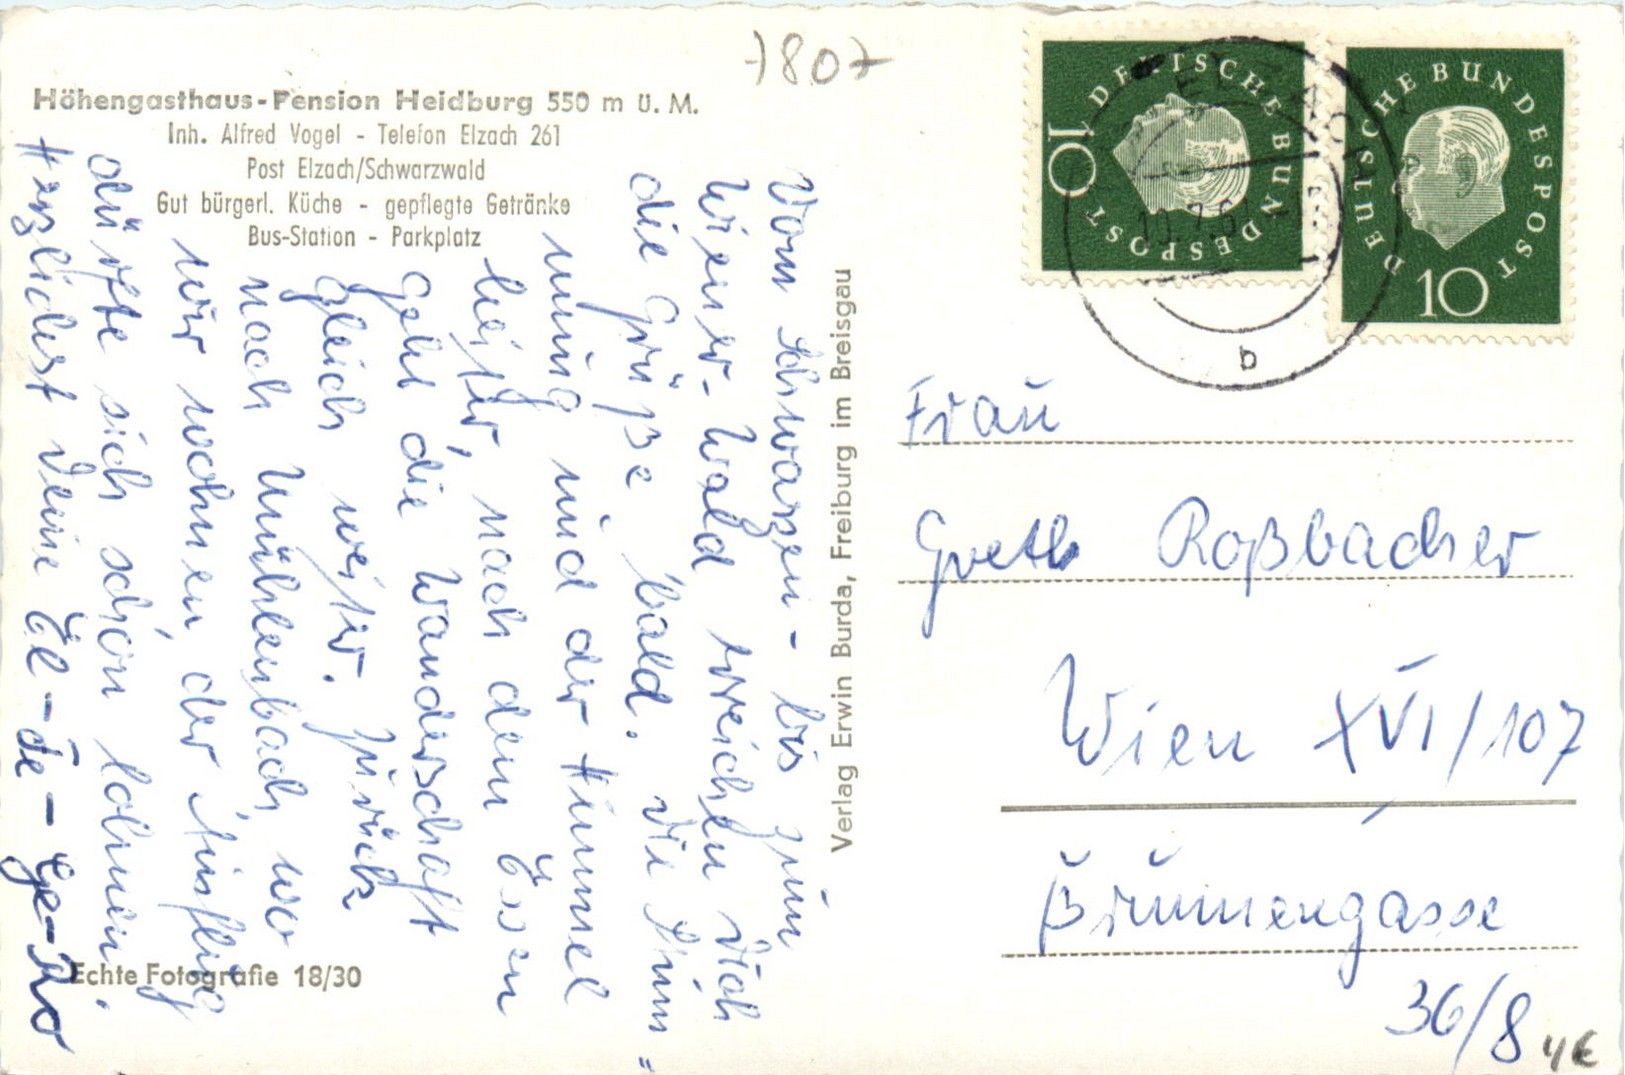 7807
Höhengasthaus-Pension Heidburg 550 m ü. M.
Inh. Alfred Vogel - Telefon Elzach 261
Post Elzach/Schwarzwald
Gut bürgerl. Küche - gepflegte Getränke
Bus-Station - Parkplatz
Vom Schwarzen- bis zum
Wiener-Wald erreichen Dich
die Grüße bald. Die Stim=
mung und der Himmel
heiter, nach dem Essen
geht die Wanderschaft
gleich weiter. Zurück
nach Mühlenbach, wo
wir wohnen, der Ausflug
dürfte sich schon lohnen.
Herzlichst Deine El-Fe-Ge-Ro
Echte Fotografie 18/30
Verlag Erwin Burda, Freiburg im Breisgau
DEUTSCHE BUNDESPOST
10
DEUTSCHE BUNDESPOST
10
ELZACH
b
Frau
Greth Roßbacher
Wien XVI/107
Brunnengasse
36/8
4€